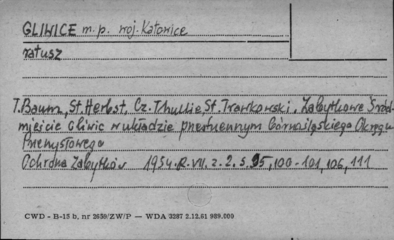 GLIWICE m.p. woj. Katowice
ratusz
T. Baum, St. Herbst, Cz. Thullie, St. Trawkowski, Zabytkowe Śród-
mieście Gliwic w układzie przestrzennym Górnośląskiego Okręgu
Przemysłowego
Ochrona Zabytków 1954.R.VII.z.2.s.95,100-101,106,111
CWD - B-15 b, nr 2659/ZW/P — WDA 3287 2.12.61 989.000